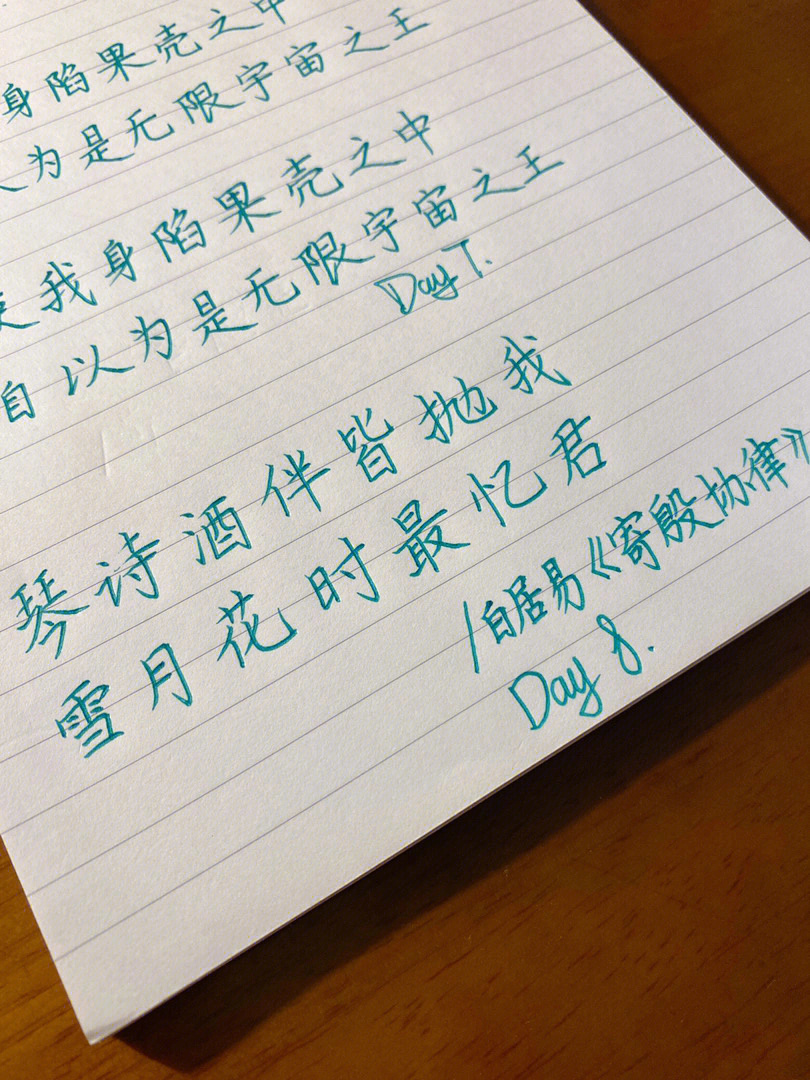 身陷果壳之中
以为是无限宇宙之王
使我身陷果壳之中
自以为是无限宇宙之王
Day 7.
琴诗酒伴皆抛我
雪月花时最忆君
/白居易《寄殷协律》
Day 8.